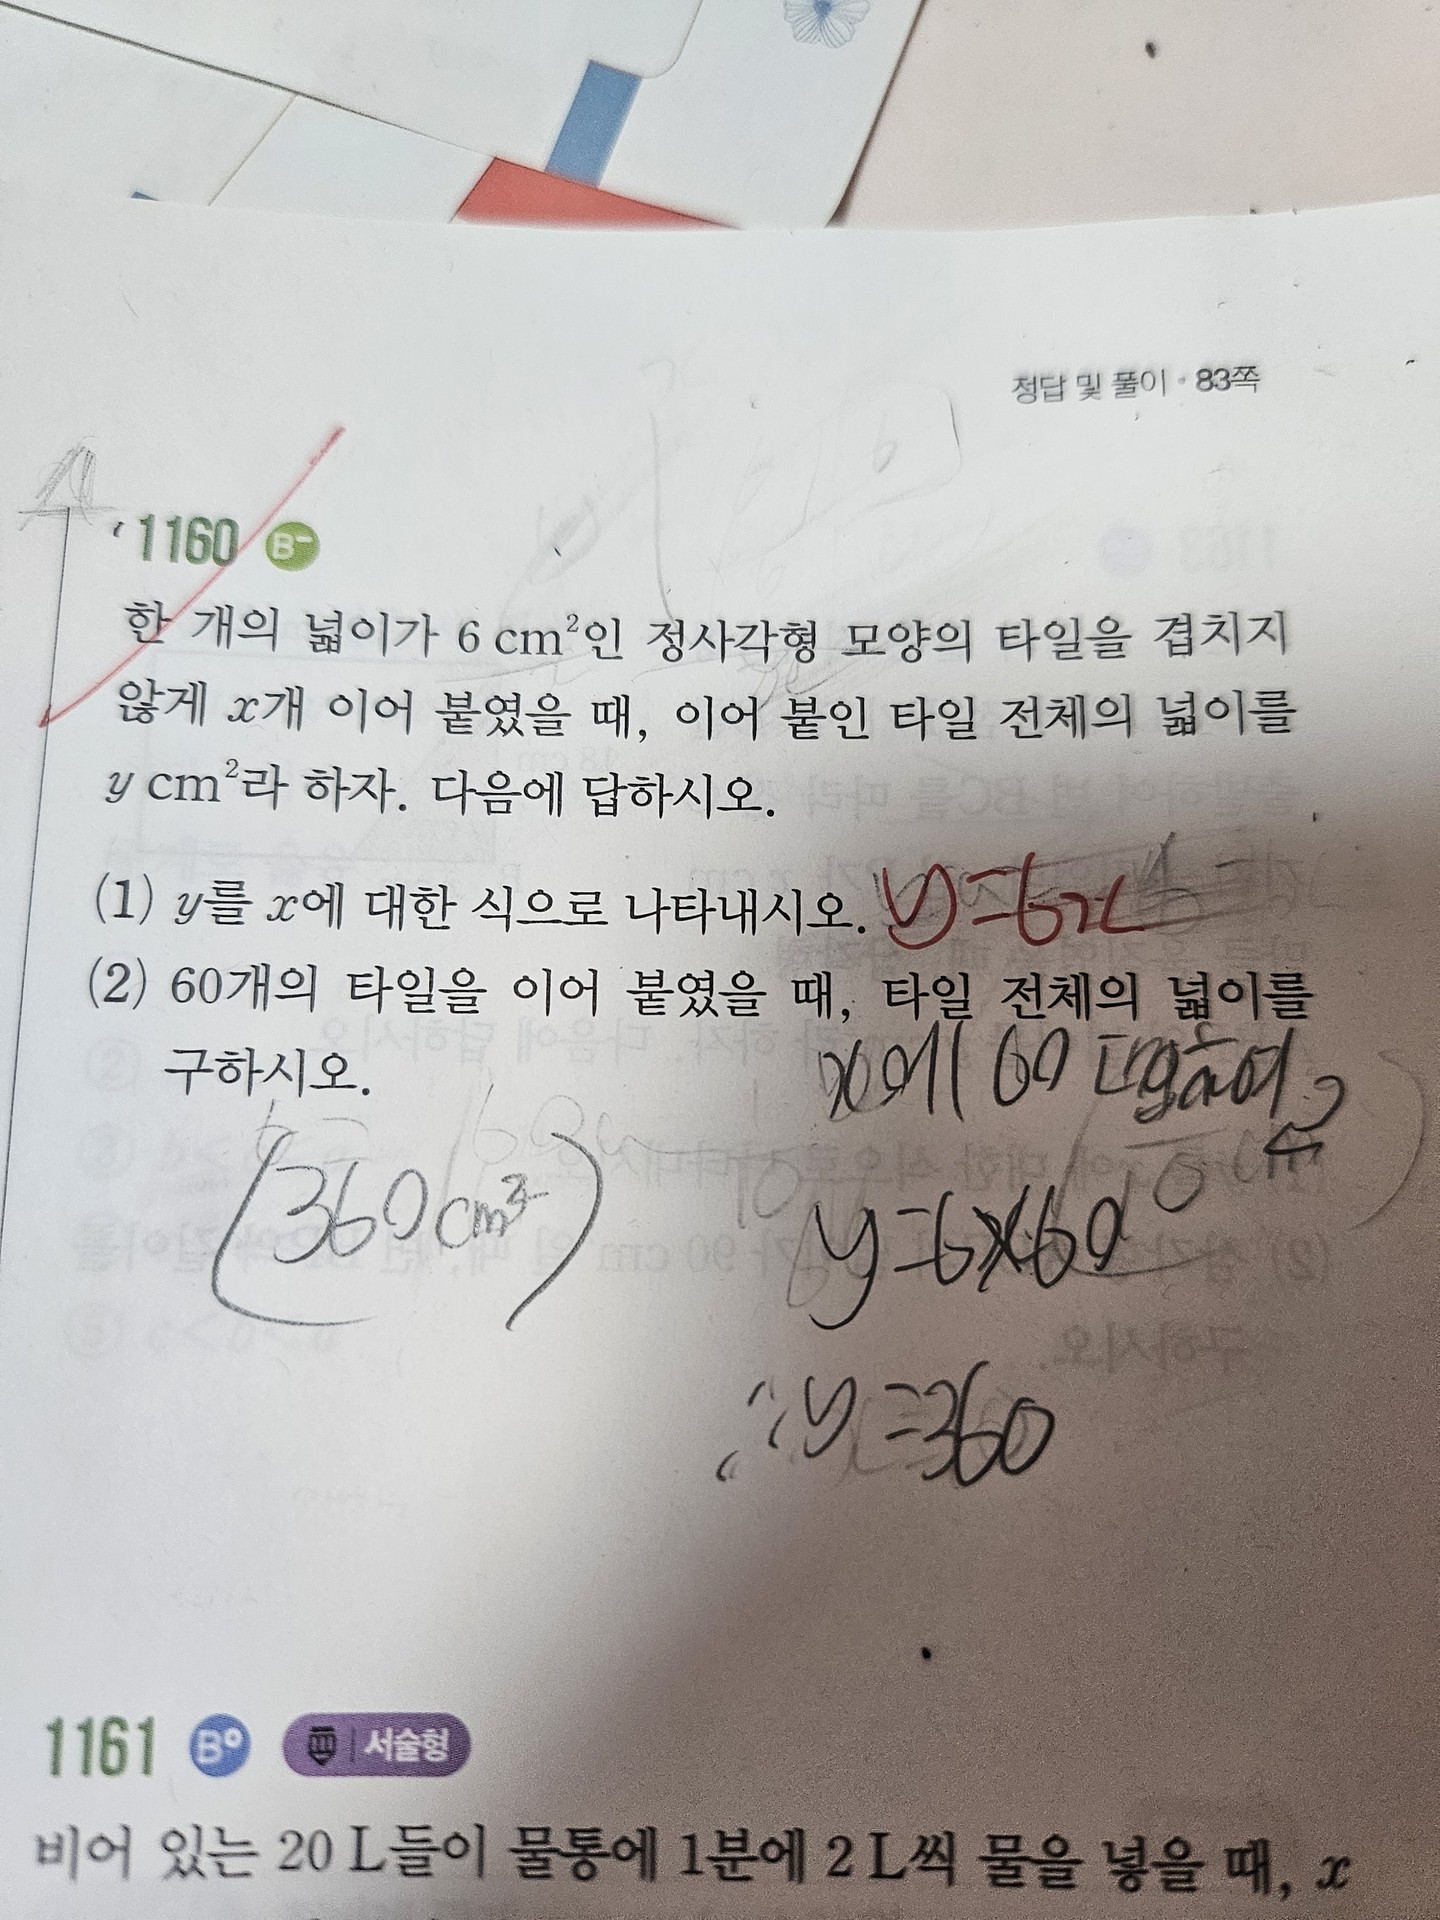 정답 및 풀이 · 83쪽
1160 B-
한 개의 넓이가 6 cm²인 정사각형 모양의 타일을 겹치지
않게 x개 이어 붙였을 때, 이어 붙인 타일 전체의 넓이를
y cm²라 하자. 다음에 답하시오.
(1) y를 x에 대한 식으로 나타내시오. y=6x
(2) 60개의 타일을 이어 붙였을 때, 타일 전체의 넓이를
구하시오.
x에 60 대입하여
(360cm²)
y=6×60
∴y=360
1161 B° 서술형
비어 있는 20 L들이 물통에 1분에 2 L씩 물을 넣을 때, x